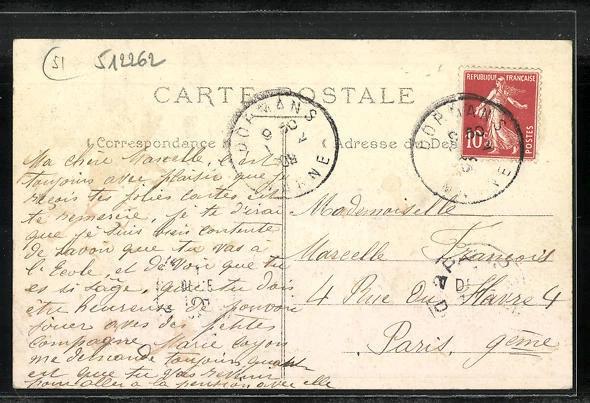 51 512262
CARTE POSTALE
Correspondance
Adresse du Des
DORMANS
MARNE
DORMANS
REPUBLIQUE FRANÇAISE
10
POSTES
Ma chère Marcelle, c'est
toujours avec plaisir que je
reçois tes jolies cartes, et
te remercie, je te dirai
que je suis très contente
de savoir que tu vas à
l'École, et de voir que tu
es si sage, que tu dois
être heureuse de pouvoir
jouer avec des petites
compagne Marie Layon
me demande toujours quand
est que tu vas revenir
pour aller à la pension avec elle
Mademoiselle
Marcelle François
4 Rue du Havre 4
Paris. 9ème